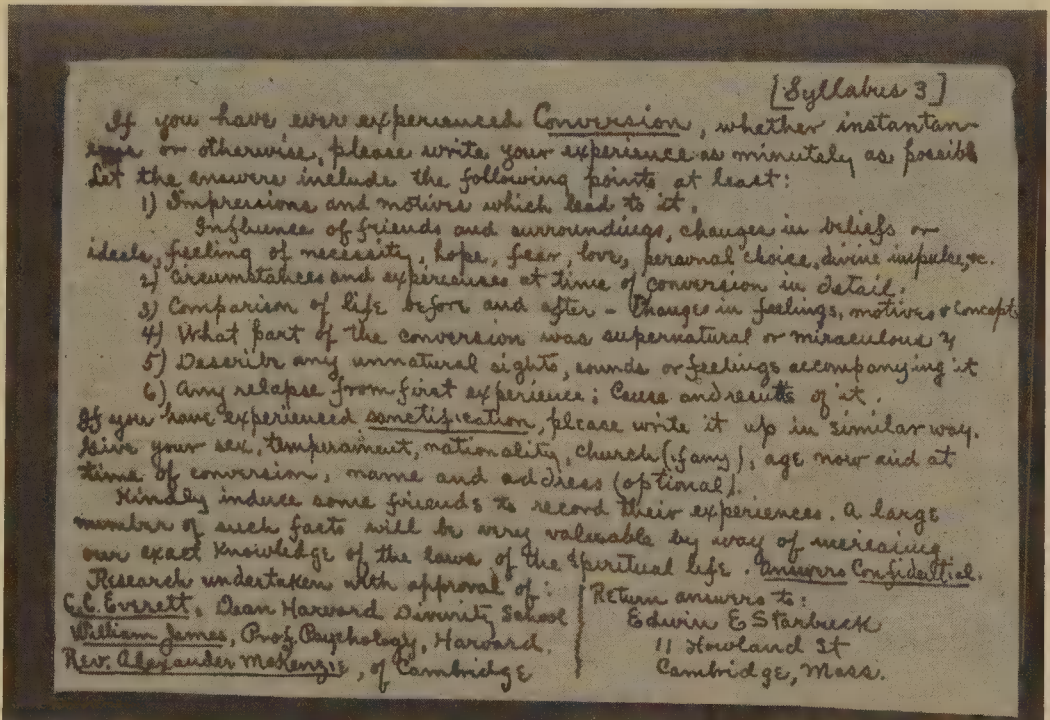 [Syllabus 3]
If you have ever experienced Conversion, whether instantan-
eous or otherwise, please write your experience as minutely as possibl
Let the answers include the following points at least:
1) Impressions and motives which lead to it.
Influence of friends and surroundings, changes in beliefs or
ideals, feeling of necessity, hope, fear, love, personal choice, divine impulse, &c.
2) Circumstances and experiences at time of conversion in detail.
3) Comparison of life before and after – Changes in feelings, motives & concepts
4) What part of the conversion was supernatural or miraculous?
5) Describe any unnatural sights, sounds or feelings accompanying it
6) Any relapse from first experience; Cause and results of it.
If you have experienced sanctification, please write it up in similar way.
Give your sex, temperament, nationality, church (if any), age now and at
time of conversion, name and address (optional).
Kindly induce some friends to record their experiences. A large
number of such facts will be very valuable by way of increasing
our exact knowledge of the laws of the Spiritual life. Answers Confidential.
Research undertaken with approval of:
C.C. Everett, Dean Harvard Divinity School
William James, Prof. Psychology, Harvard.
Rev. Alexander McKenzie, of Cambridge
Return answers to:
Edwin E Starbuck
11 Howland St
Cambridge, Mass.